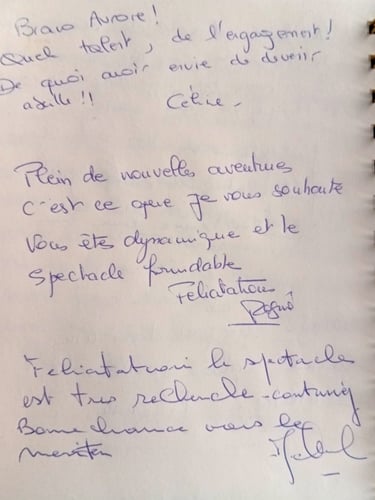 Bravo Aurore !
Quel talent, de l'engagement !
De quoi avoir envie de devenir
abeille !!
Célie.
Plein de nouvelles aventures
c'est ce que je vous souhaite
Vous êtes dynamique et le
spectacle formidable
Felicitations
Felicitation le spectacle
est très recherche. continuez
Bonne chance vous le
meritez